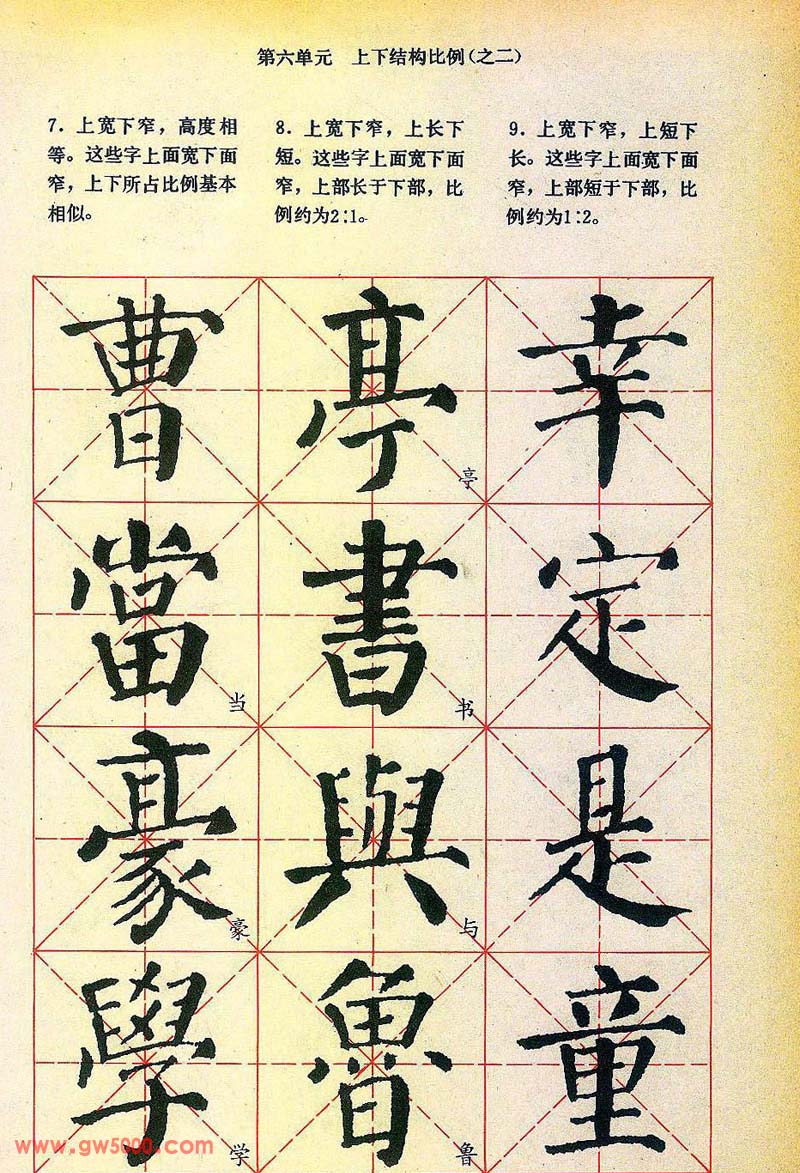 第六单元 上下结构比例(之二)
7. 上宽下窄，高度相
等。这些字上面宽下面
窄，上下所占比例基本
相似。
8. 上宽下窄，上长下
短。这些字上面宽下面
窄，上部长于下部，比
例约为2:1。
9. 上宽下窄，上短下
长。这些字上面宽下面
窄，上部短于下部，比
例约为1:2。
曹 亭 幸
亭
當 書 定
当 书
豪 與 是
豪 与
學 魯 童
学 鲁
www.gw5000.com